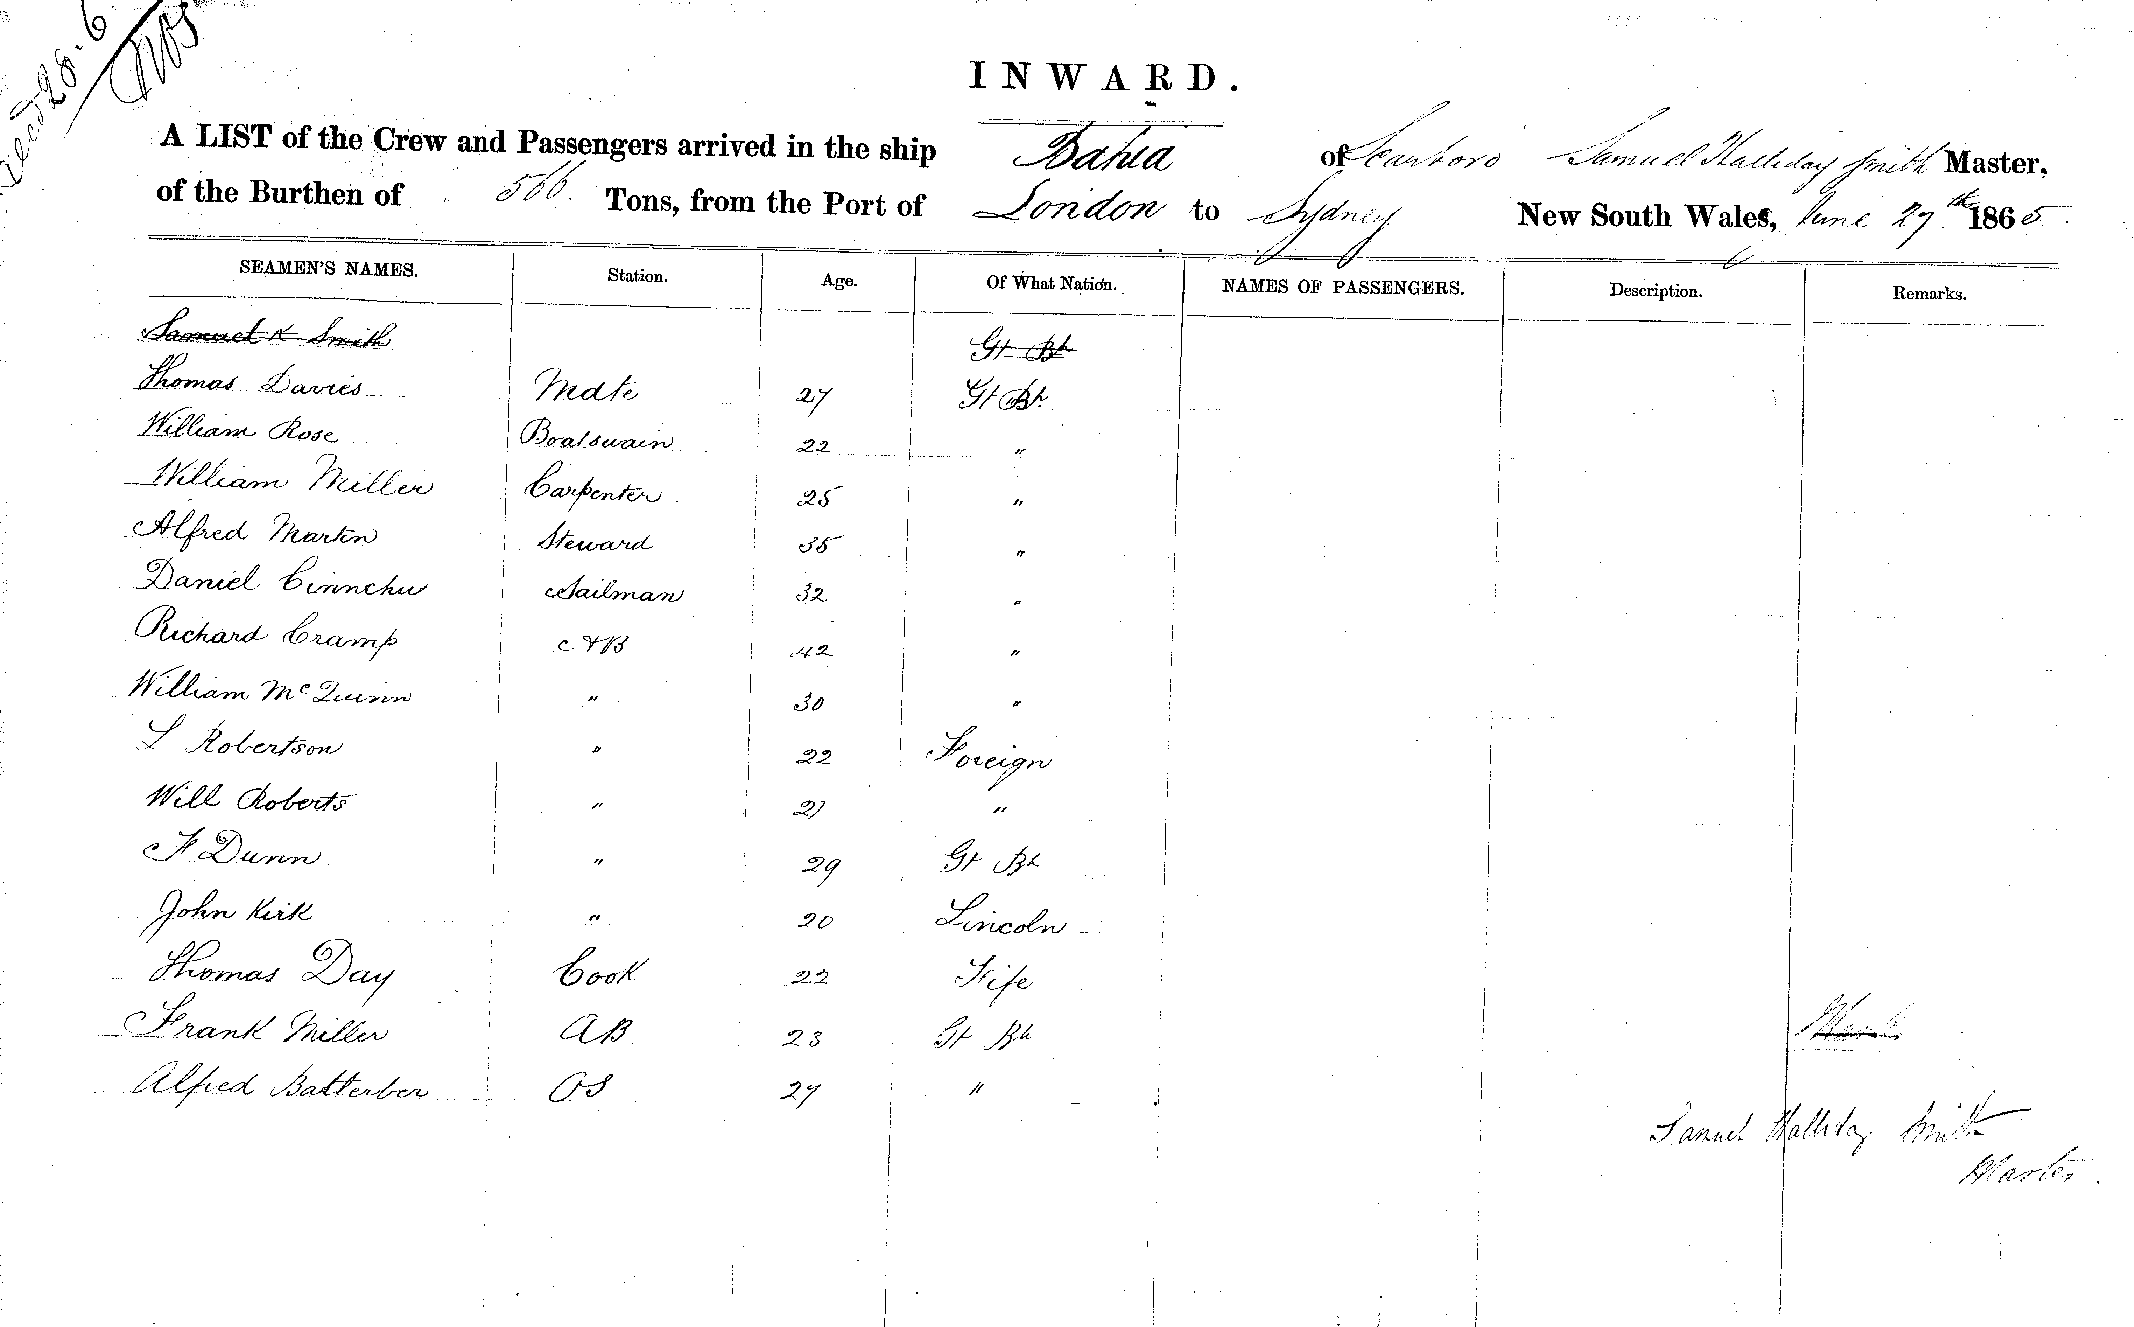 Recd 28.6
INWARD.
A LIST of the Crew and Passengers arrived in the ship Bahia of Scarboro Samuel Halliday Smith Master,
of the Burthen of 566 Tons, from the Port of London to Sydney New South Wales, June 27th 1865
SEAMEN'S NAMES. Station. Age. Of What Nation. NAMES OF PASSENGERS. Description. Remarks.
Samuel H Smith Gt Bn
Thomas Davies Mate 27 Gt Bn
William Rose Boatswain 22 "
William Miller Carpenter 25 "
Alfred Martin Steward 35 "
Daniel Sailman 32 "
Richard Cramp AB 42 "
William McQuinn " 30 "
L Robertson " 22 Foreign
Will Roberts " 21 "
F Dunn " 29 Gt Bn
John Kirk " 20 Lincoln
Thomas Day Cook 22 Fife
Frank Miller AB 23 Gt Bn
Alfred Batterber OS 27 "
Samuel Halliday Smith
Master.